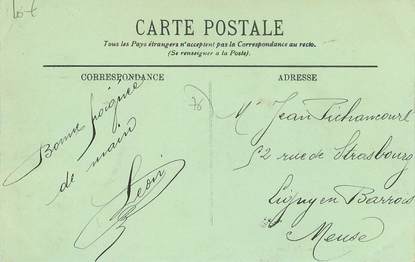 10 €
CARTE POSTALE
Tous les Pays étrangers n'acceptent pas la Correspondance au recto.
(Se renseigner à la Poste).
CORRESPONDANCE
Bonne poignée
de main
76
ADRESSE
Mr Jean Pichancourt
52 rue de Strasbourg
Ligny en Barrois
Meuse